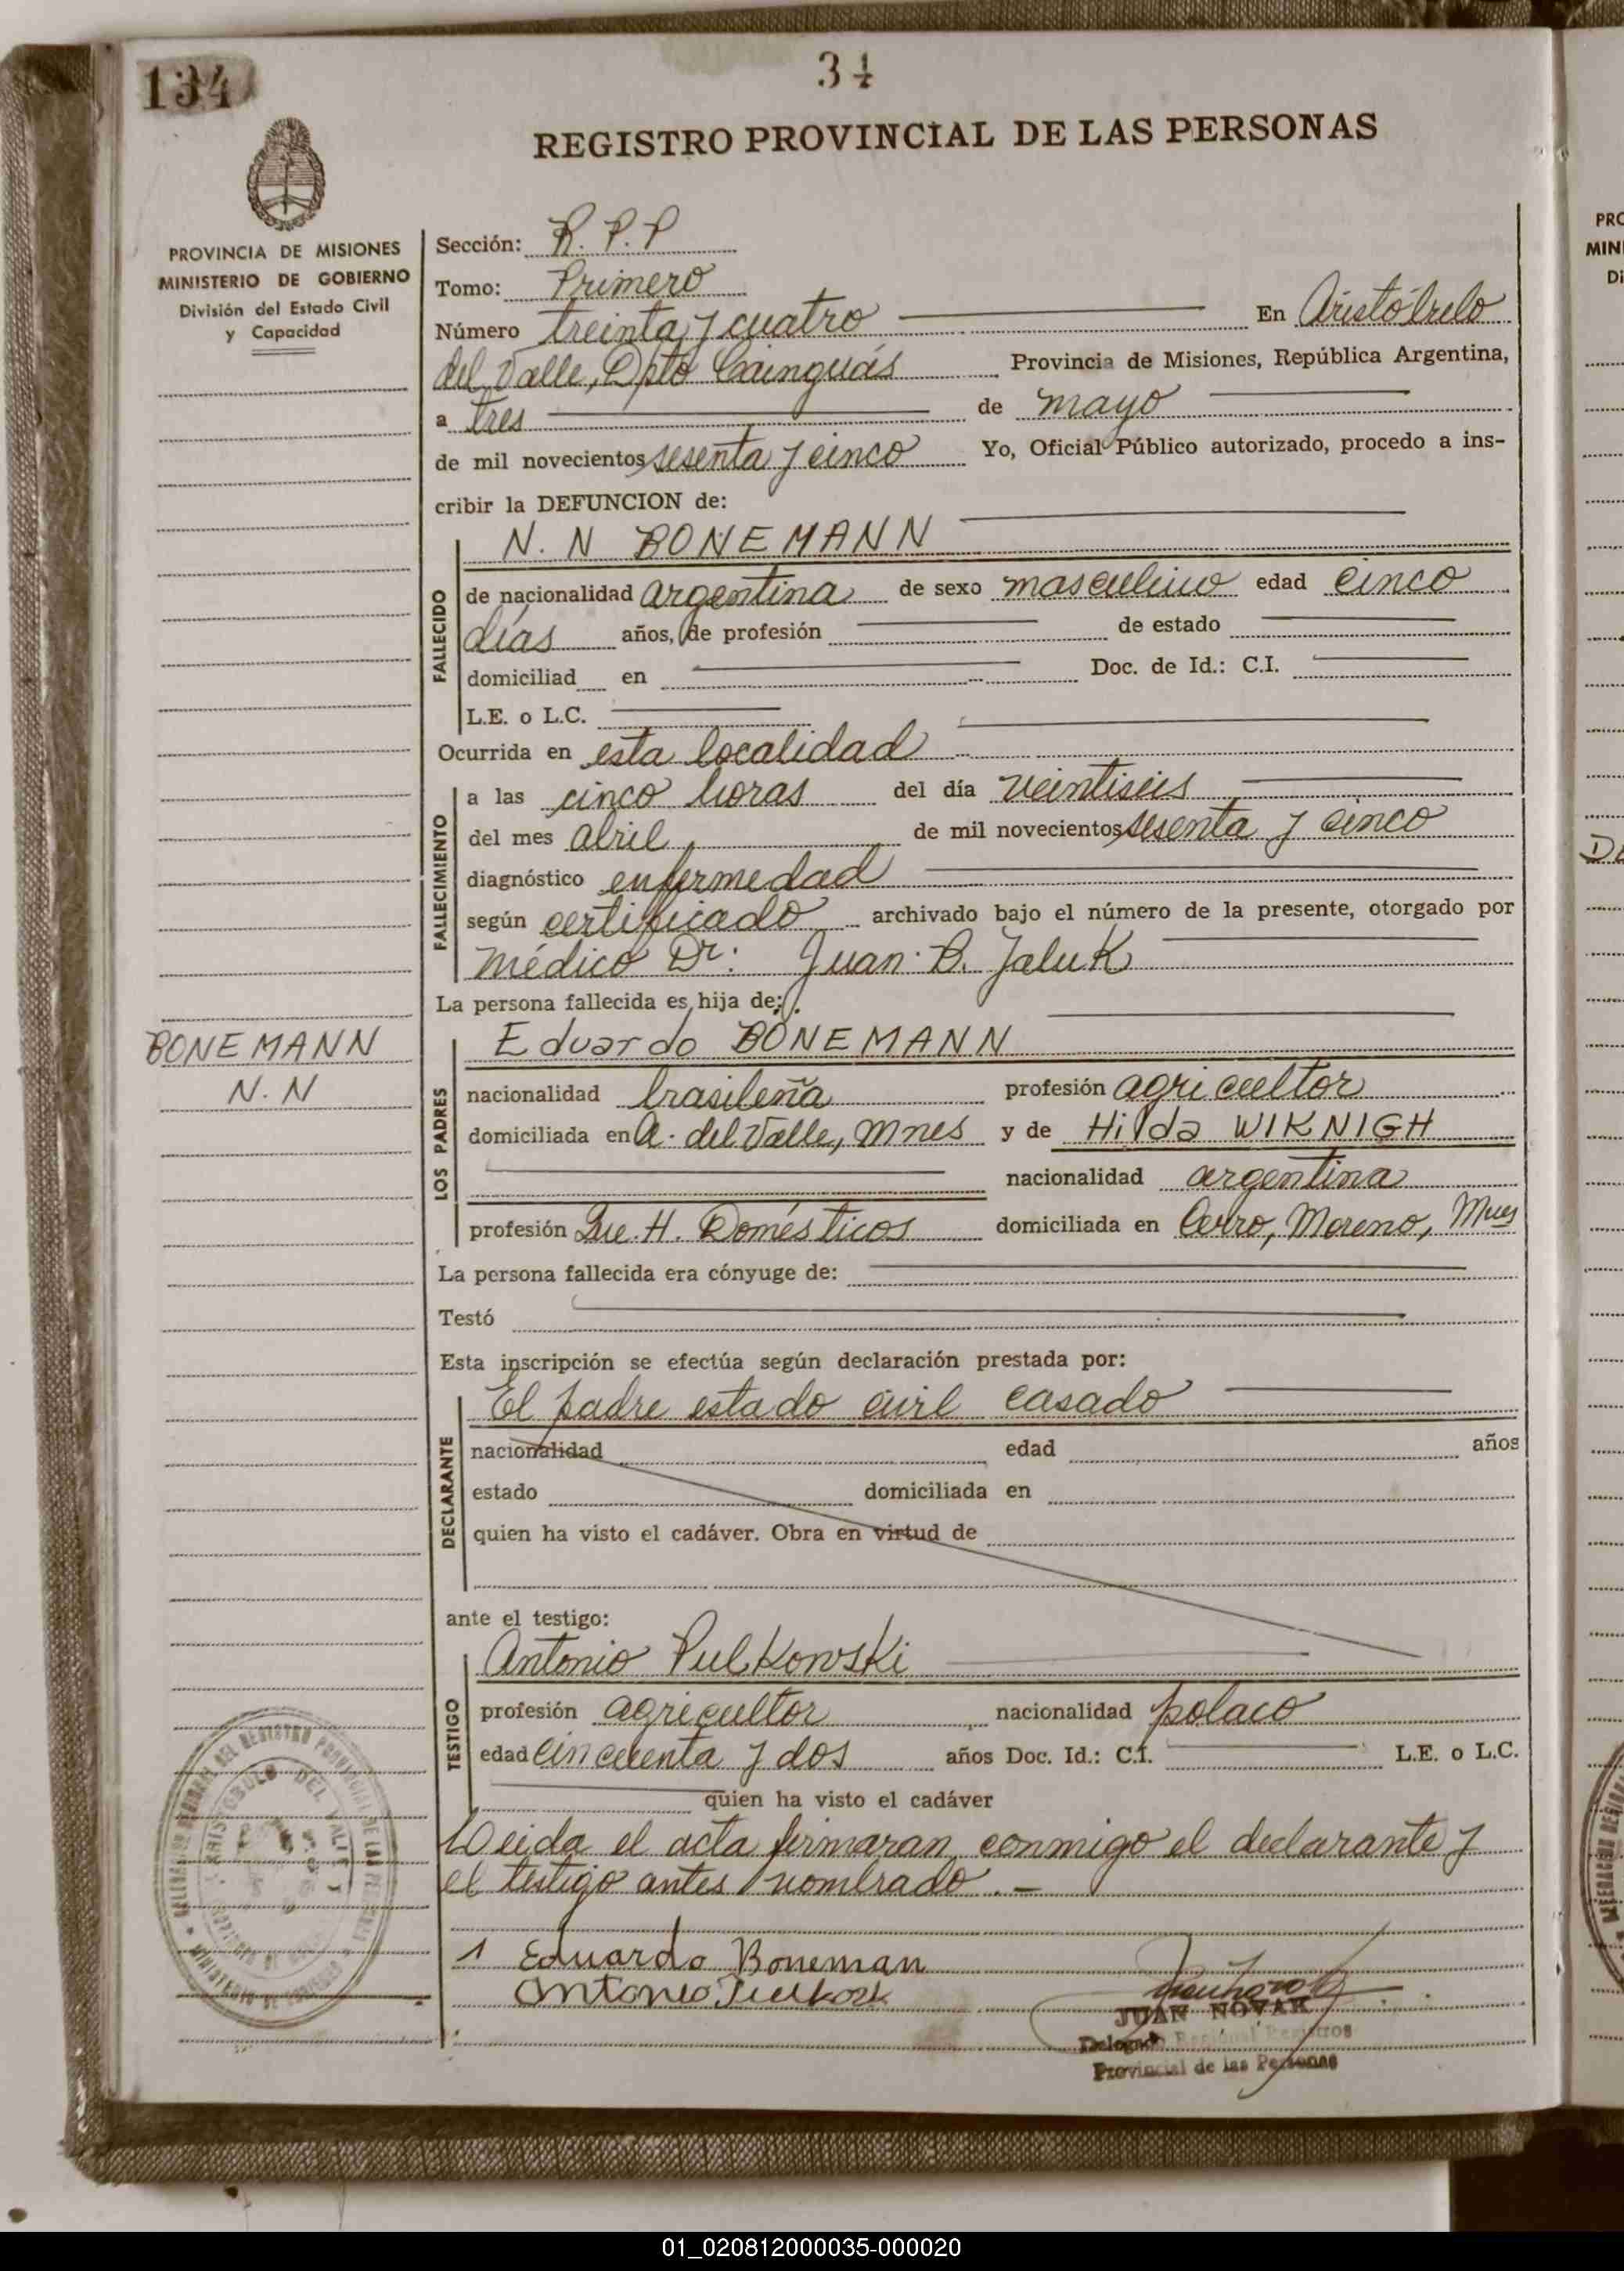 134
34
REGISTRO PROVINCIAL DE LAS PERSONAS
PROVINCIA DE MISIONES
MINISTERIO DE GOBIERNO
División del Estado Civil
y Capacidad
Sección: R. P. P
Tomo: Primero
Número treinta y cuatro En Aristóbulo
del Valle, Dpto Cainguás Provincia de Misiones, República Argentina,
a tres de mayo
de mil novecientos sesenta y cinco Yo, Oficial Público autorizado, procedo a ins-
cribir la DEFUNCION de:
N. N BONEMANN
FALLECIDO
de nacionalidad argentina de sexo masculino edad cinco
días años, de profesión de estado
domiciliad en Doc. de Id.: C.I.
L.E. o L.C.
Ocurrida en esta localidad
FALLECIMIENTO
a las cinco horas del día veintiseis
del mes abril de mil novecientos sesenta y cinco
diagnóstico enfermedad
según certificado archivado bajo el número de la presente, otorgado por
médico Dr: Juan B. Jaluk
La persona fallecida es hija de:
BONEMANN
N. N
LOS PADRES
Eduardo BONEMANN
nacionalidad brasileña profesión agricultor
domiciliada en A. del Valle, Mnes y de Hilda WIKNIGH
nacionalidad argentina
profesión Que. H. Domésticos domiciliada en Cerro, Moreno, Mnes
La persona fallecida era cónyuge de:
Testó
Esta inscripción se efectúa según declaración prestada por:
DECLARANTE
El padre estado civil casado
nacionalidad edad años
estado domiciliada en
quien ha visto el cadáver. Obra en virtud de
ante el testigo:
TESTIGO
Antonio Pulkowski
profesión agricultor nacionalidad polaco
edad cincuenta y dos años Doc. Id.: C.I. L.E. o L.C.
quien ha visto el cadáver
Leida el acta firmaran conmigo el declarante y
el testigo antes nombrado.-
1 Eduardo Boneman
Antonio
JUAN NOVAK
Delegado Regional Registros
Provincial de las Personas
ARISTOBULO DEL VALLE
PRO
MIN
Di
01_020812000035-000020